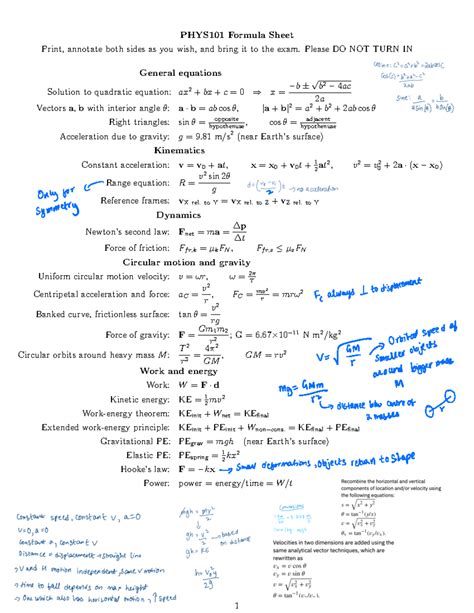 PHYS101 Formula Sheet
Print, annotate both sides as you wish, and bring it to the exam. Please DO NOT TURN IN
General equations
Solution to quadratic equation: ax² + bx + c = 0 ⇒ x = (−b ± √(b² − 4ac)) / 2a
Vectors a, b with interior angle θ: a · b = ab cos θ, |a + b|² = a² + b² + 2ab cos θ
Right triangles: sin θ = opposite/hypothenuse, cos θ = adjacent/hypothenuse
Acceleration due to gravity: g = 9.81 m/s² (near Earth's surface)
Kinematics
Constant acceleration: v = v₀ + at, x = x₀ + v₀t + ½at², v² = v₀² + 2a · (x − x₀)
Only for symmetry
Range equation: R = v² sin 2θ / g
no acceleration
Reference frames: v_X rel. to Y = v_X rel. to Z + v_Z rel. to Y
Dynamics
Newton's second law: F_net = ma = Δp/Δt
Force of friction: F_fr,k = μ_k F_N, F_fr,s ≤ μ_s F_N
Circular motion and gravity
Uniform circular motion velocity: v = ωr, ω = 2π/T
Centripetal acceleration and force: a_C = v²/r, F_C = mv²/r = mrω²
F_c always ⊥ to displacement
Banked curve, frictionless surface: tan θ = v²/rg
Force of gravity: F = Gm₁m₂/r²; G = 6.67×10⁻¹¹ N m²/kg²
Circular orbits around heavy mass M: T²/r³ = 4π²/GM, GM = rv²
V = √(GM/r) → Orbital speed of smaller objects around bigger mass M
Work and energy
Work: W = F · d
mg = GMm/r²
distance b/w centre of 2 masses
Kinetic energy: KE = ½mv²
Work-energy theorem: KE_init + W_net = KE_final
Extended work-energy principle: KE_init + PE_init + W_non-cons. = KE_final + PE_final
Gravitational PE: PE_grav = mgh (near Earth's surface)
Elastic PE: PE_spring = ½kx²
Hooke's law: F = −kx → Small deformations, objects return to shape
Power: power = energy/time = W/t
Recombine the horizontal and vertical
components of location and/or velocity using
the following equations:
Constant speed, constant v, a=0
v=0, a=0
Constant a, constant v
Distance = displacement → straight line
V and H motion independent, same v motion
time to fall depends on max height
One which also has horizontal motion, ↑ speed
based on distance
Velocities in two dimensions are added using the
same analytical vector techniques, which are
rewritten as
v_x = v cos θ
v_y = v sin θ
v = √(v_x² + v_y²)
θ = tan⁻¹(v_y/v_x)
1